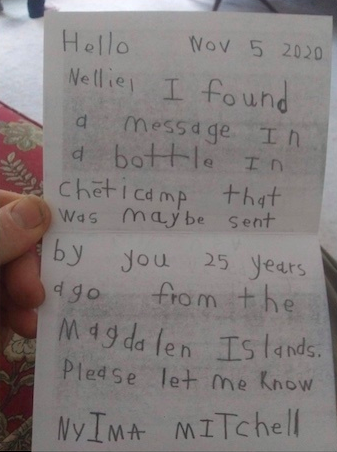 Hello Nov 5 2020
Nellie, I found
a message In
a bottle In
cheticamp that
was maybe sent
by you 25 years
ago from the
Magdalen Islands.
Please let me know
NyIMA MITchell